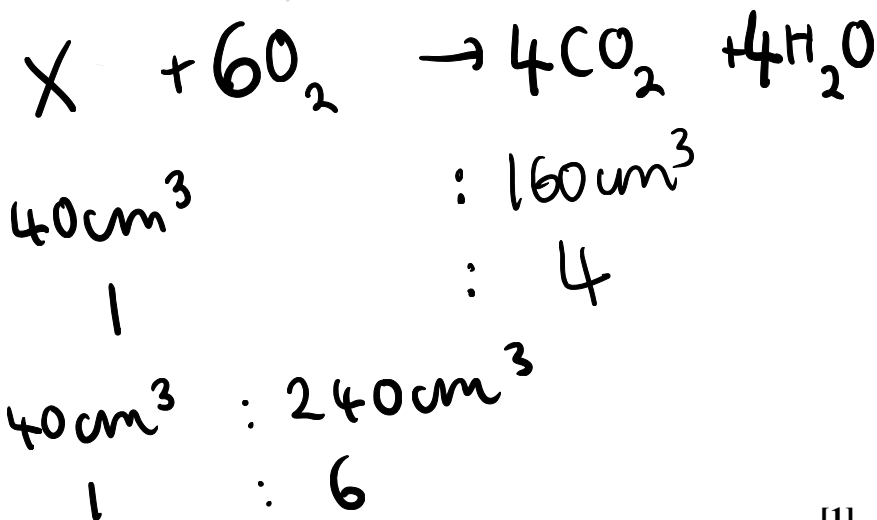 X + 6O₂ → 4CO₂ + 4H₂O
40cm³ : 160cm³
1 : 4
40cm³ : 240cm³
1 : 6
[1]